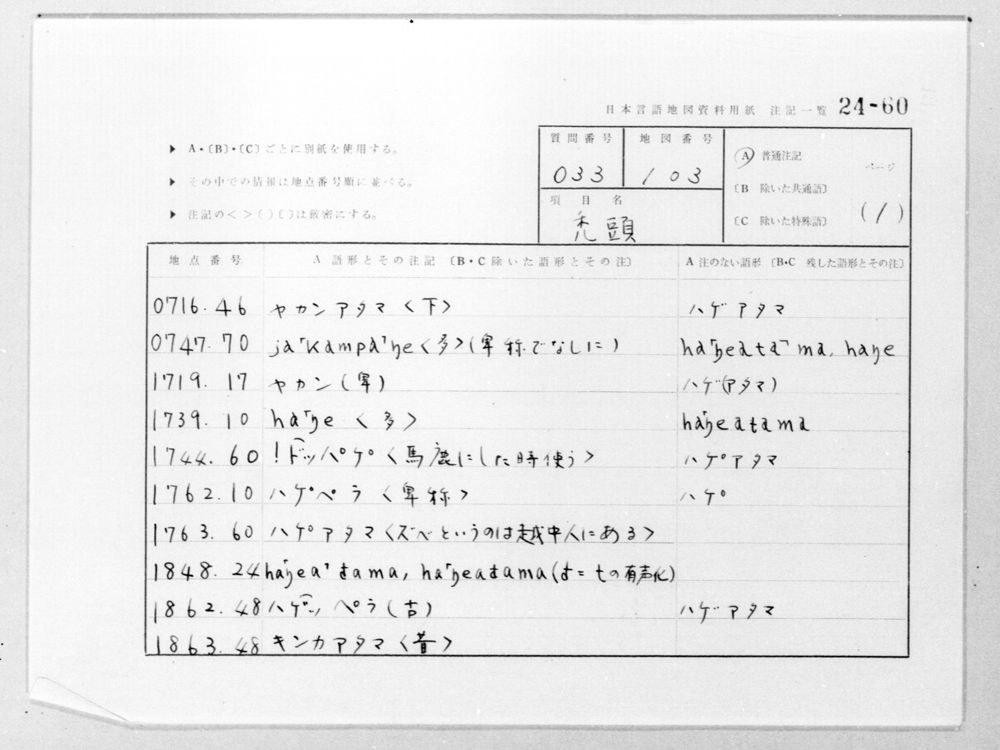 日本言語地図資料用紙 注記一覧 24-60
▶ A・〔B〕・〔C〕ごとに別紙を使用する。
▶ その中での情報は地点番号順に並べる。
▶ 注記の< >( )〔 〕は厳密にする。
質問番号 033
地図番号 103
項目名 禿頭
Ⓐ 普通注記
〔B 除いた共通語〕
〔C 除いた特殊語〕
ページ (1)
地点番号 A 語形とその注記〔B・C 除いた語形とその注〕 A 注のない語形〔B・C 残した語形とその注〕
0716.46 ヤカンアタマ<下> ハゲアタマ
0747.70 ja⌈kampa⌉ŋe<多>(卑称でなしに) ha⌈ŋeata⌉ma, haŋe
1719.17 ヤカン(卑) ハゲ(アタマ)
1739.10 ha⌈ŋe <多> ha⌈ŋeatama
1744.60 !ドッパゲ<馬鹿にした時使う> ハケ゚アタマ
1762.10 ハケ゚ベラ<卑称> ハケ゚
1763.60 ハケ゚アタマ<ズベというのは越中人にある>
1848.24 ha⌈ŋea⌉t̬ama, ha⌈ŋeat̬ama(t̬=tの有声化)
1862.48 ハゲッペラ(古) ハゲアタマ
1863.48 キンカアタマ<昔>